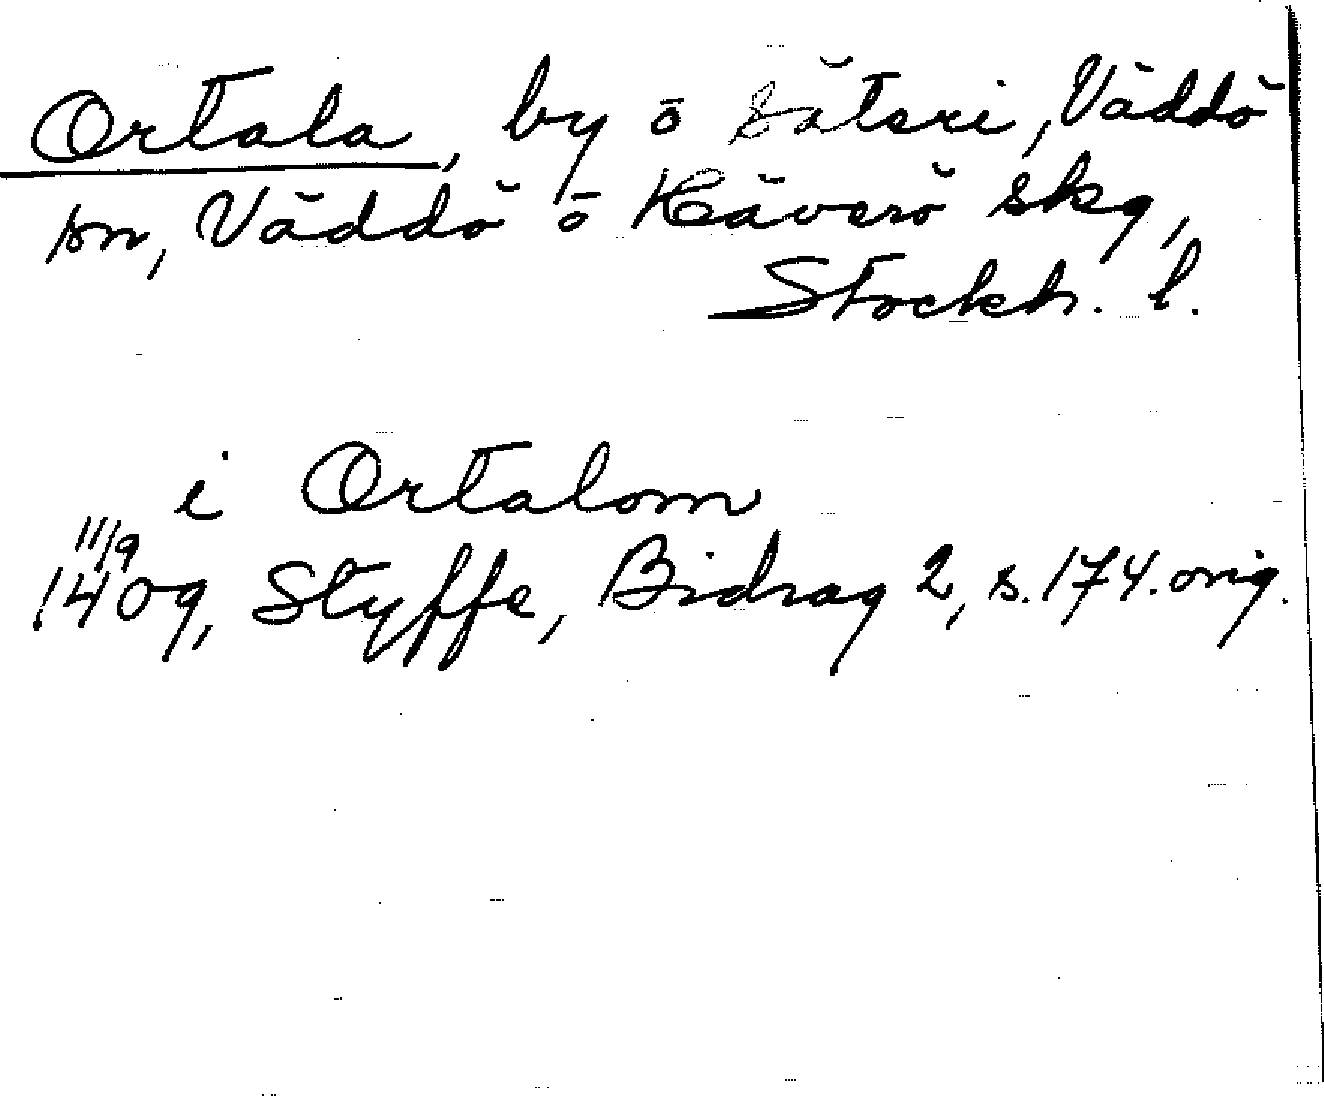 Ortala, by o säteri, Väddö
sn, Väddö o Häverö skg,
Stockh. l.
i Ortalom
11/9
1409, Styffe, Bidrag 2, s. 174. orig.